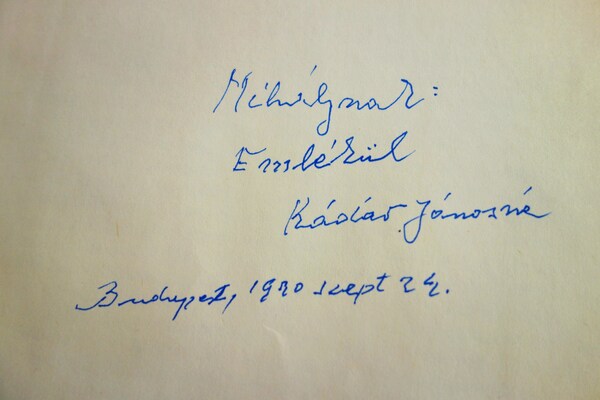 Mihálynak:
Emlékül
Kádár Jánosné
Budapest, 1990 szept 24.